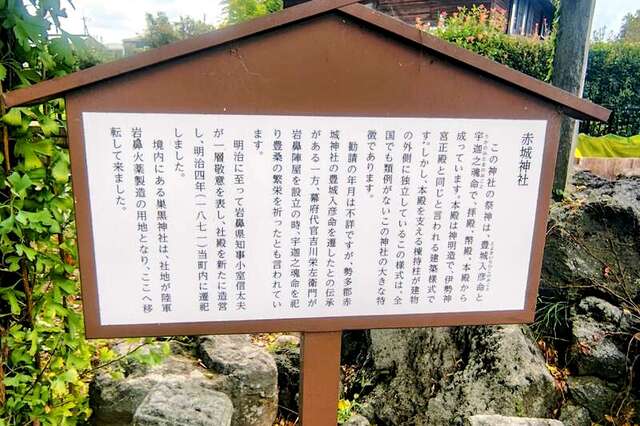 赤城神社
この神社の祭神は、豊城入彦命と
宇迦之魂命で、拝殿、幣殿、本殿から
成っています。本殿は神明造で、伊勢神
宮正殿と同じと言われる建築様式で
す。しかし、本殿を支える棟持柱が建物
の外側に独立しているこの様式は、全
国でも類例がないこの神社の大きな特
徴であります。
勧請の年月は不詳ですが、勢多郡赤
城神社の豊城入彦命を遷したとの伝承
がある一方、幕府代官吉川栄左衛門が
岩鼻陣屋を設立の時、宇迦之魂命を祀
り豊桑の繁栄を祈ったとも言われてい
ます。
明治に至って岩鼻県知事小室信太夫
が一層敬意を表し、社殿を新たに造営
し、明治四年(一八七一)当町内に遷祀
しました。
境内にある巣黒神社は、社地が陸軍
岩鼻火薬製造の用地となり、ここへ移
転して来ました。